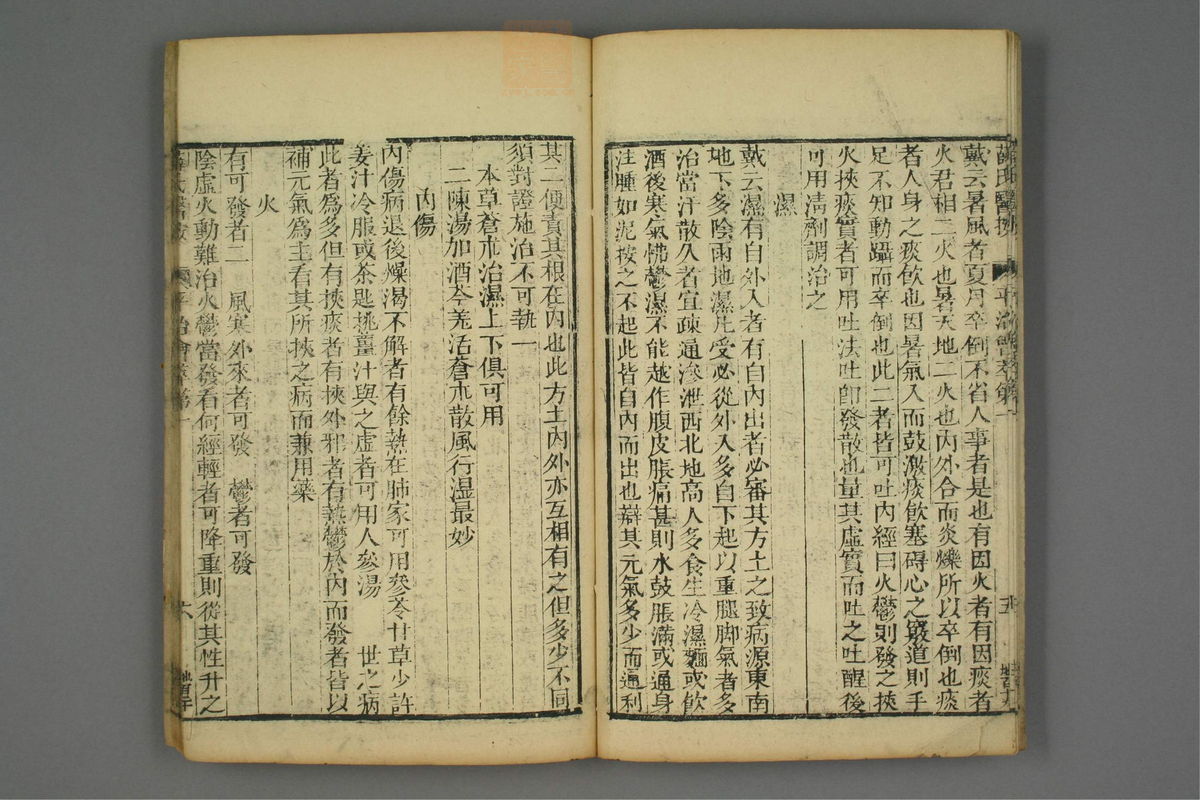 薛氏醫按 平治會萃第一 五
戴云暑風者夏月卒倒不省人事者是也有因火者有因痰者
火君相二火也暑天地二火也內外合而炎爍所以卒倒也痰
者人身之痰飲也因暑氣入而鼓激痰飲塞碍心之竅道則手
足不知動躡而卒倒也此二者皆可吐內經曰火鬱則發之挾
火挾痰實者可用吐法吐卽發散也量其虛實而吐之吐醒後
可用清劑調治之
濕
戴云濕有自外入者有自內出者必審其方土之致病源東南
地下多陰雨地濕凡受必從外入多自下起以重腿脚氣者多
治當汗散久者宜疎通滲泄西北地高人多食生冷濕麵或飲
酒後寒氣怫鬱濕不能越作腹皮脹痛甚則水鼓脹滿或通身
浮腫如泥按之不起此皆自內而出也辯其元氣多少而通利
其二便責其根在內也此方土內外亦互相有之但多少不同
須對證施治不可執一
本草蒼朮治濕上下俱可用
二陳湯加酒芩羌活蒼朮散風行湿最妙
內傷
內傷病退後燥渴不解者有餘熱在肺家可用參苓甘草少許
姜汁冷服或茶匙挑薑汁與之虛者可用人參湯 世之病
此者爲多但有挾痰者有挾外邪者有熱鬱於內而發者皆以
補元氣爲主看其所挾之病而兼用藥
火
有可發者二 風寒外來者可發 鬱者可發
陰虛火動難治火鬱當發看何經輕者可降重則從其性升之
薛氏醫按 平治會萃第一 六